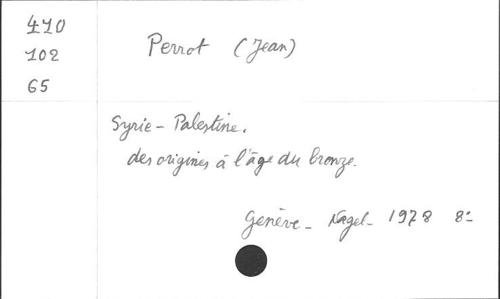 410
102
65
Perrot (Jean)
Syrie - Palestine.
des origines à l'âge du bronze.
Genève - Nagel - 1978 8°